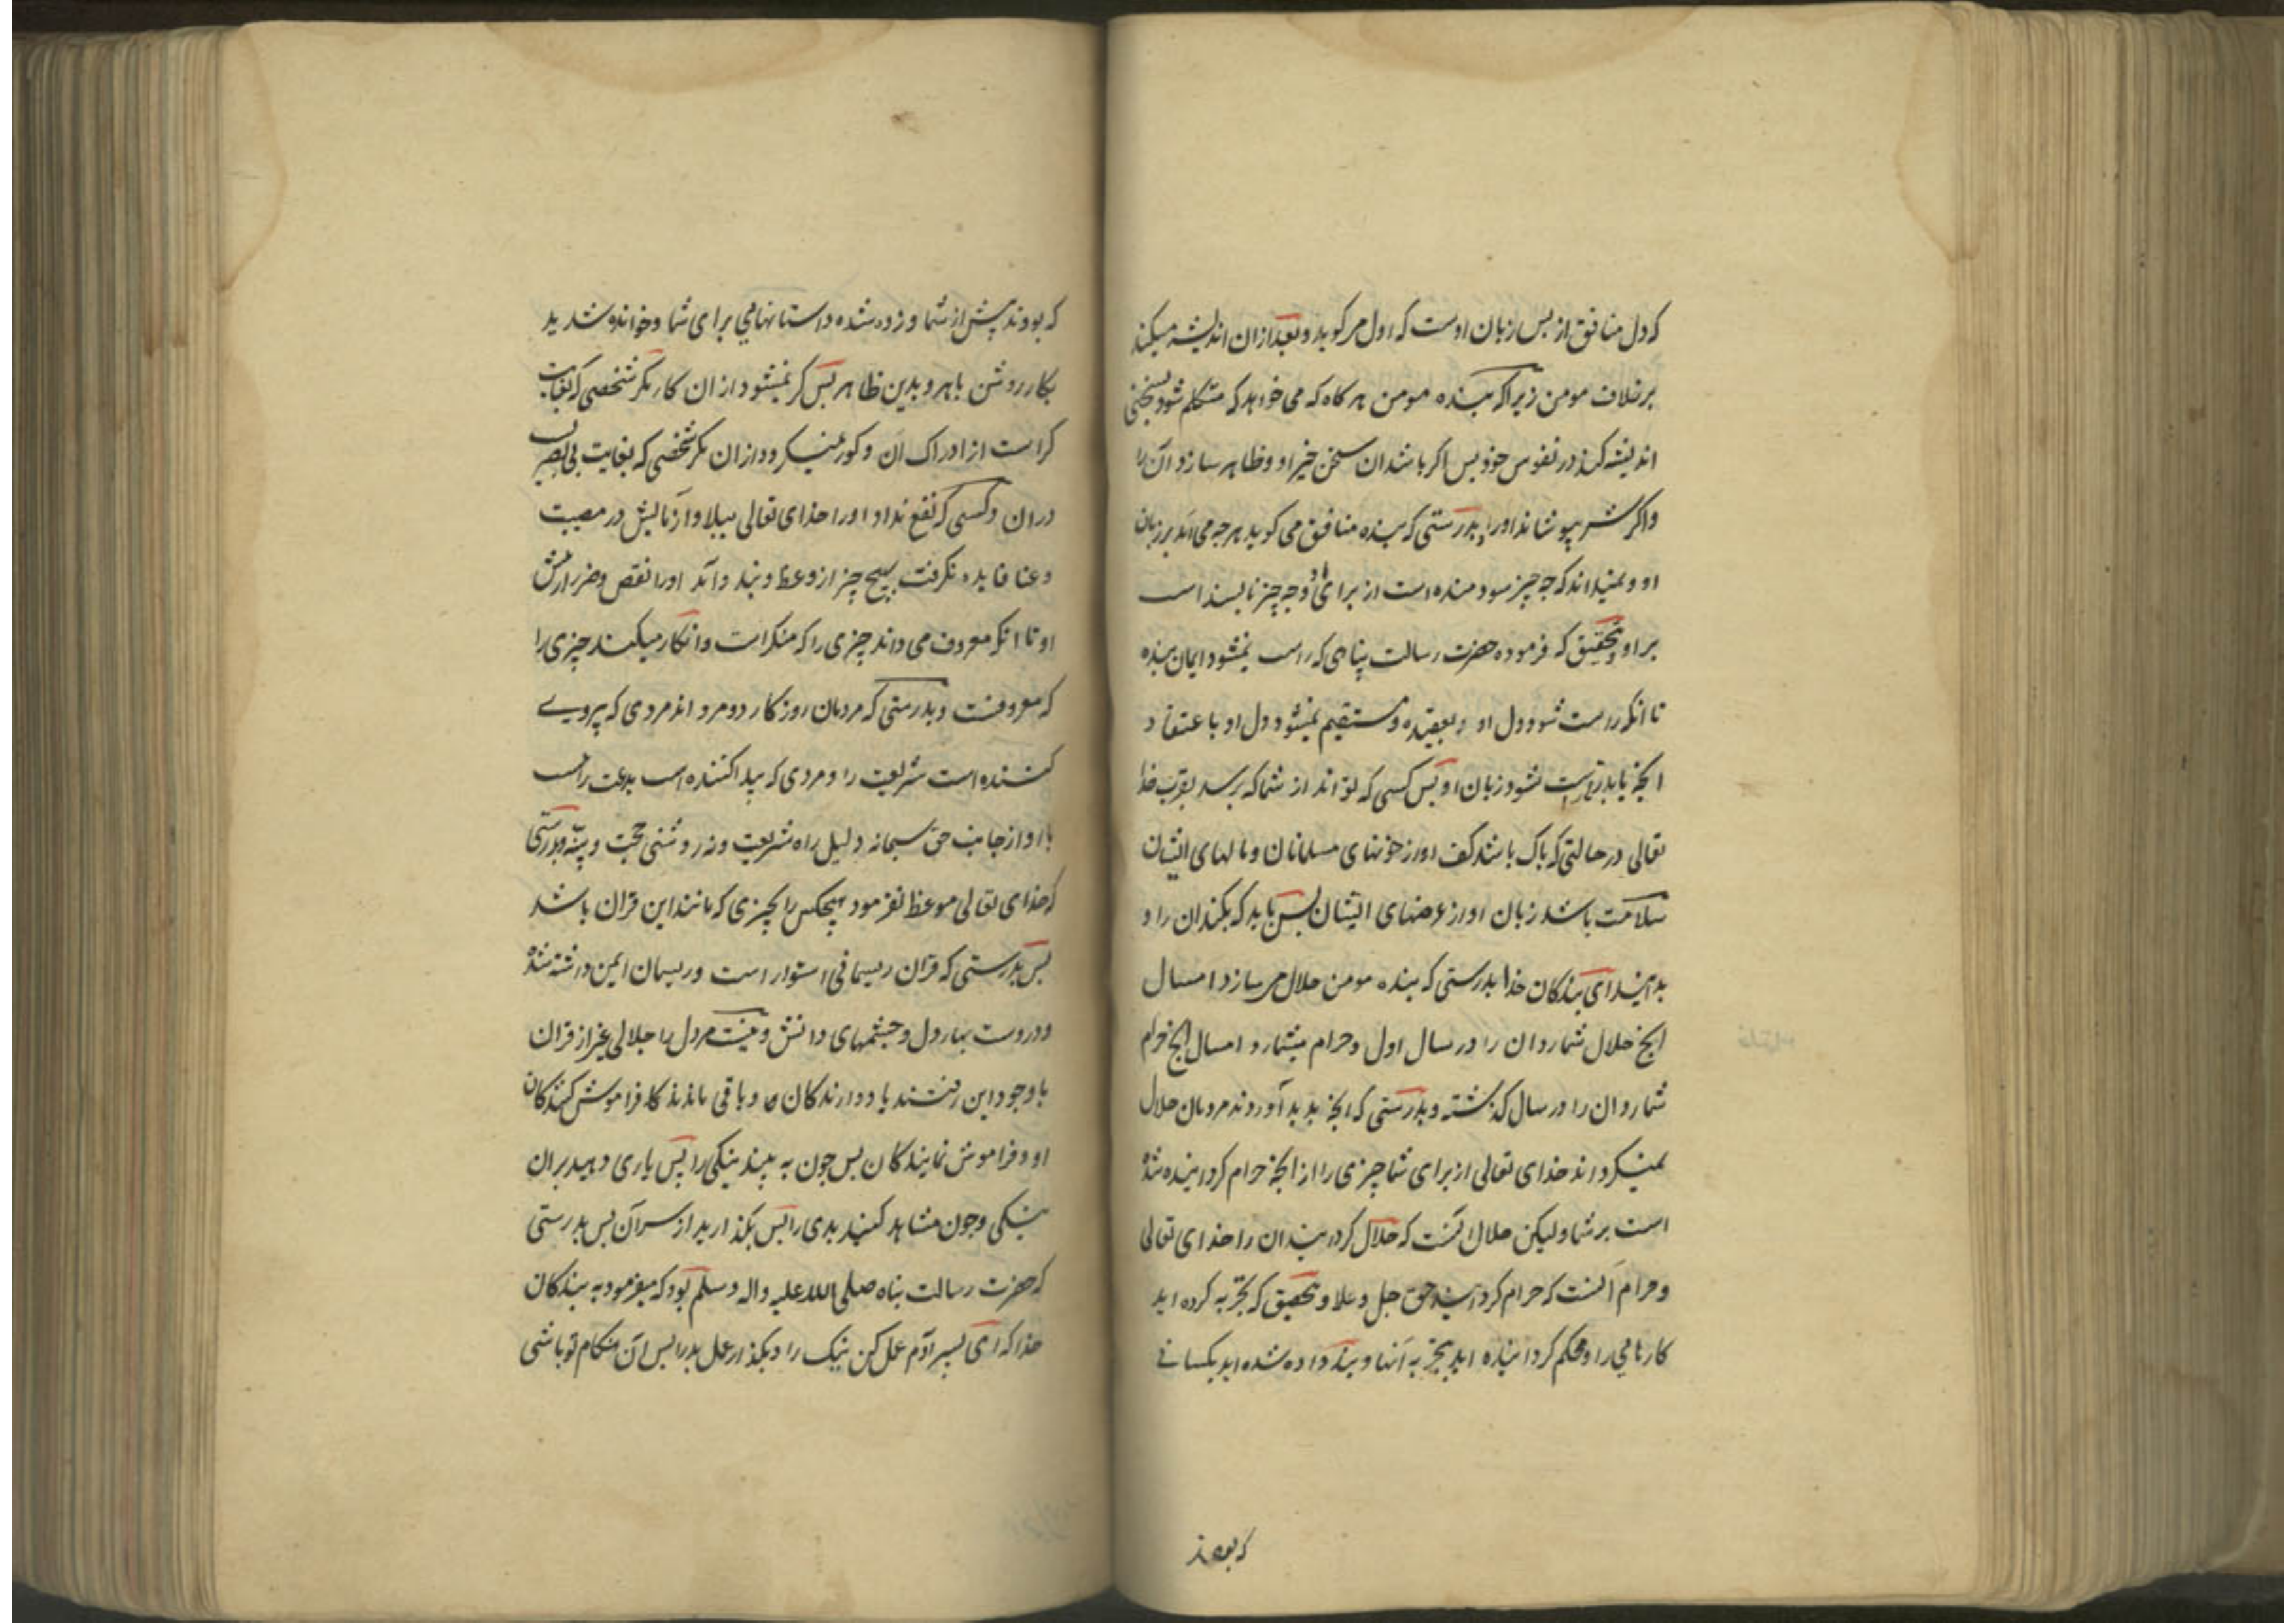 که دل منافق از پس زبان اوست که اول میکوید و بعد ازان اندیشه میکند
برخلاف مومن زیرا که بنده مومن هر کاه که می خواهد که متکلم شود بسخنی
اندیشه کند در نفوس خود پس اکر باشد ان سخن خیر او و ظاهر سازد آن را
واکر شر بپوشاند اورا و بدرستی که بنده منافق می کوید هر چه می آید بر زبان
او و نمیداند که چه چیز سودمنده است از برای او و چه چیز ناپسند است
بر او و بتحقیق که فرموده حضرت رسالت پناهی که راست نمیشود ایمان بنده
تا انکه راست شود دل او و بعقیده و مستقیم نمیشود دل او باعتقاد
انچه باید تا راست نشود زبان او پس کسی که تواند از شما که برسد بقرب خدا
تعالی در حالتی که پاک باشد کف او از خونهای مسلمانان و مالهای ایشان
سلامت باشد زبان او از عرضهای ایشان پس باید که بکند ان را و
بدانید ای بندکان خدا بدرستی که بنده مومن حلال می سازد امسال
انچه حلال شمارد ان را در سال اول و حرام میشمارد امسال انچه حرام
شمارد ان را در سال کذشته و بدرستی که انچه پدید آوردند مردمان حلال
نمیکرداند خدای تعالی از برای شما چیزی را از انچه حرام کردانیده شده
است بر شما ولیکن حلال آنست که حلال کردانید ان را خدای تعالی
و حرام آنست که حرام کردانید حق جل و علا و بتحقیق که تجربه کرده اید
کارهای را و محکم کردانیده اید بتجربه آنها و پند داده شده اید بکسانی
که بودند
که بودند پیش از شما و زده شده داستانهای برای شما و خوانده شدید
بکار روشن باهر و بدین ظاهر پس کر نمیشود ازان کار مکر شخصی که بغایت
کر است از ادراک آن و کور نمیکردد ازان مکر شخصی که بغایت بی بصر است
دران و کسی که نفع نداد اورا خدای تعالی ببلا و آزمایش در مصیبت
و عنا فایده نکرفت بهیچ چیز از وعظ و پند و آید اورا نقص و ضرر از پیش
او تا انکه معروف می داند چیزی را که منکر است و انکار میکند چیزی را
که معروفست و بدرستی که مردمان روزکار دو مرد اند مردی که پیروی
کننده است شریعت را و مردی که پیدا کننده است بدعت را نیست
با او از جانب حق سبحانه دلیل راه شریعت و نه روشنی حجت و بینه و بدرستی
که خدای تعالی موعظ نفرمود هیچکس را بچیزی که مانند این قران باشد
پس بدرستی که قرآن ریسمانی استوار است و ریسمان ایمن داشته شده
و دروست بهار دل و چشمهای دانش و نیست مر دل را جلالی غیر از قران
با وجود این رفتند یاددارندکان و باقی ماندند کا فراموش کنندکان
او و فراموش نمایندکان پس چون به بینید نیکی را پس یاری دهید بران
نیکی و چون مشاهد کنید بدی را پس بکذارید از سر آن پس بدرستی
که حضرت رسالت پناه صلی الله علیه و اله و سلم بود که میفرمود به بندکان
خدا که ای پسر آدم عمل کن نیک را و بکذار عمل بد را پس آن هنکام تو باشی